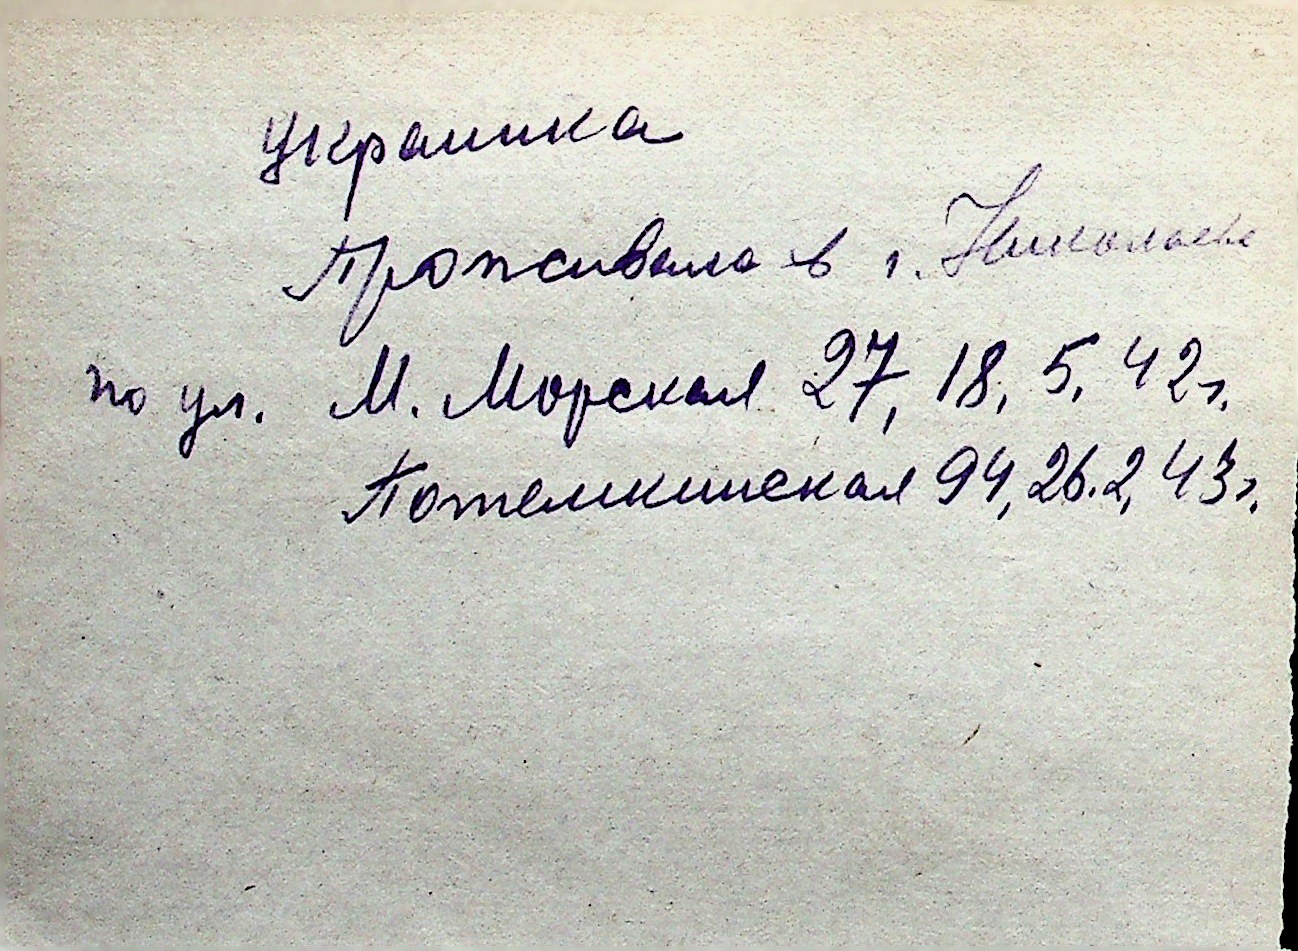 украинка
Проживала в г. Николаеве
по ул. М. Морская 27, 18, 5, 42 г.
Потемкинская 94, 26.2, 43 г.